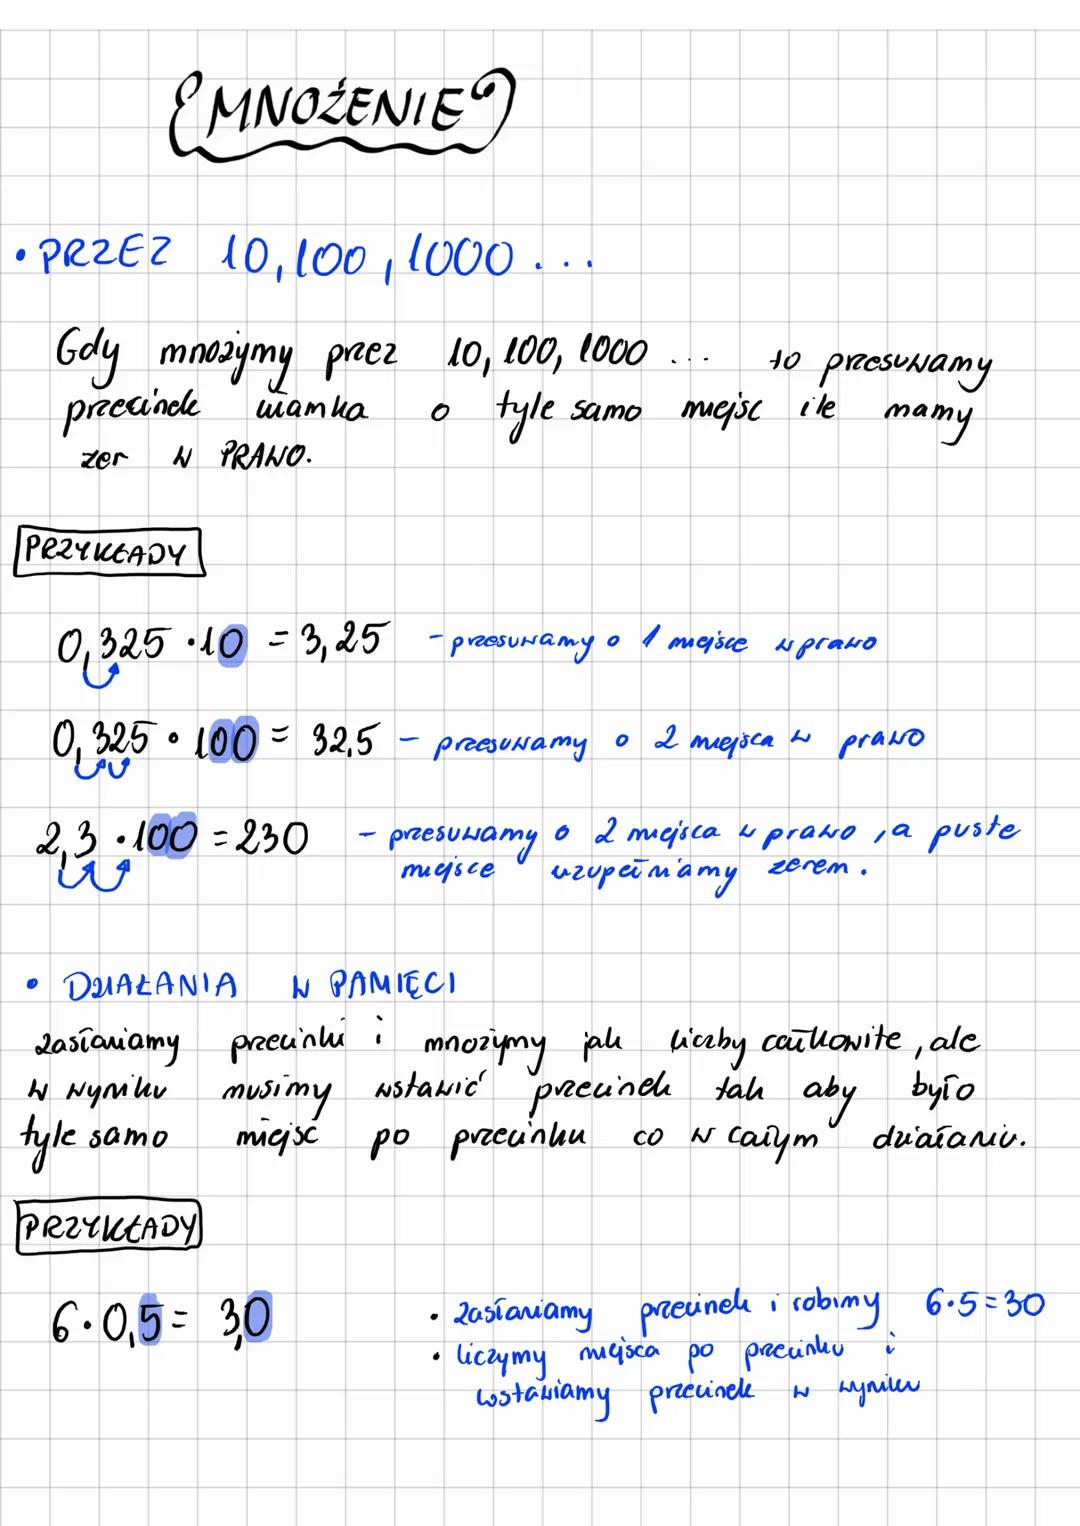 MNOŻENIE
• PRZEZ 10, 100, 1000...
Gdy mnożymy przez 10, 100, 1000 ... to przesuwamy
przecinek ułamka o tyle samo miejsc ile mamy
zer w PRAWO.
PRZYKŁADY
0,325 · 10 = 3,25 - przesuwamy o 1 miejsce w prawo
0,325 · 100 = 32,5 - przesuwamy o 2 miejsca w prawo
2,3 · 100 = 230 - przesuwamy o 2 miejsca w prawo, a puste
miejsce uzupełniamy zerem.
• DZIAŁANIA W PAMIĘCI
Zasłaniamy przecinki i mnożymy jak liczby całkowite, ale
w wyniku musimy wstawić przecinek tak aby było
tyle samo miejsc po przecinku co w całym działaniu.
PRZYKŁADY
6 · 0,5 = 3,0 • zasłaniamy przecinek i robimy 6·5=30
• liczymy miejsca po przecinku i
wstawiamy przecinek w wyniku